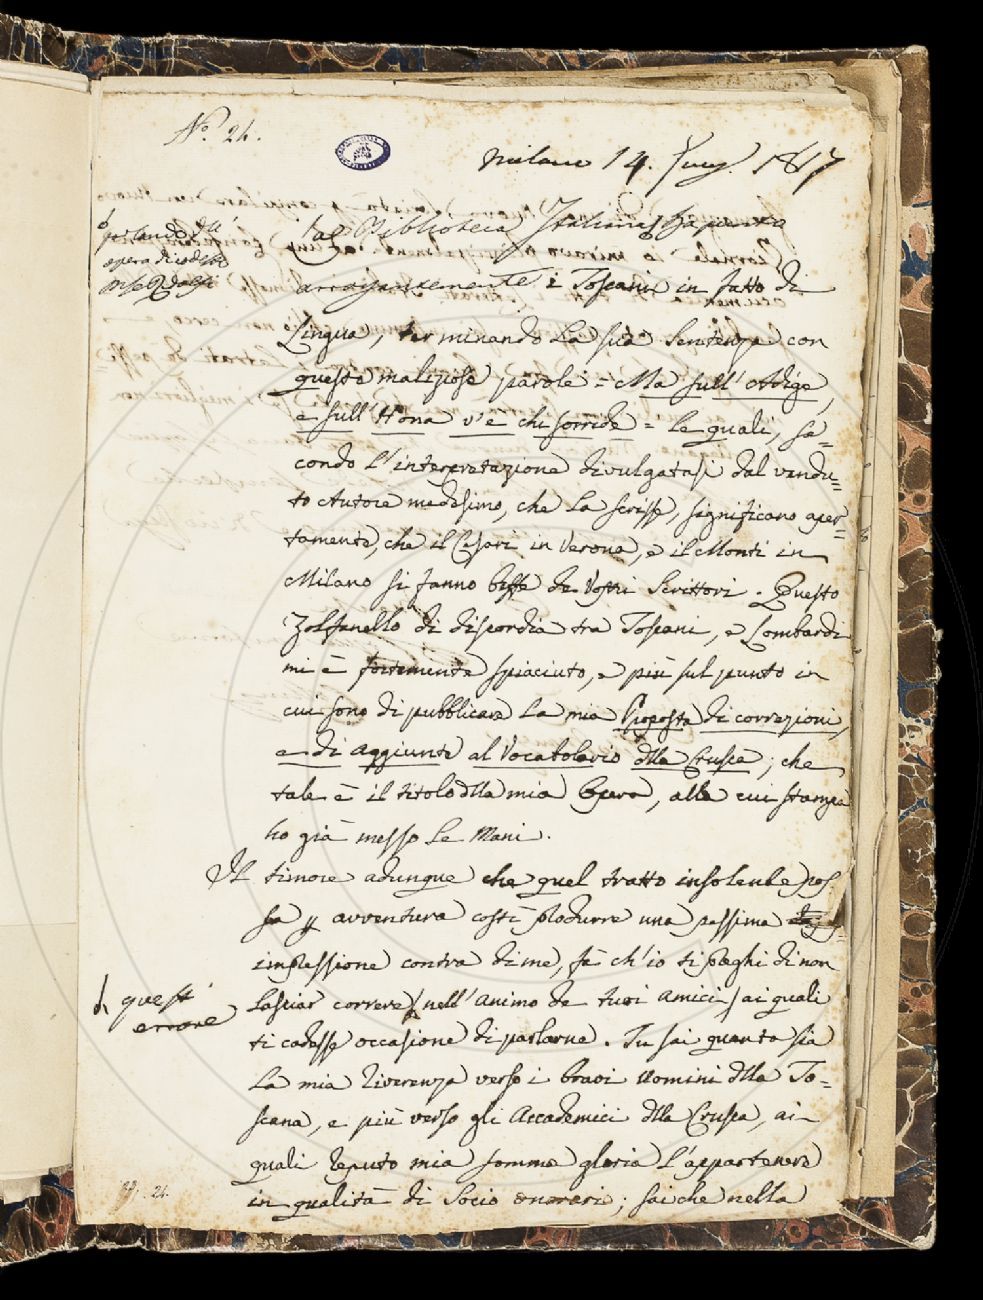 N.° 24.
Milano 14. 1817
La Biblioteca Italiana ha punto
parlando d.
opera di
arrogantemente i Toscani in fatto di
Lingua, terminando la sua sentenza con
queste malizose parole = Ma sull'Adige,
e sull'Olona v'è chi sorride = le quali, se=
condo l'interpretazione divulgatasi dal vendu=
to Autore medesimo, che la scrisse, significano aper=
tamente, che il Cesari in Verona, e il Monti in
Milano si fanno beffe de' Vostri Scrittori. Questo
Zolfanello di discordia tra Toscani, e Lombardi
mi è fortemente spiaciuto, e più sul punto in
cui sono di pubblicare la mia Proposta di correzioni,
e di aggiunte al Vocabolario della Crusca; che
tale è il titolo della mia Opera, alla cui stampa
ho già messo le mani.
Il timore adunque che quel tratto insolente pos=
sa per avventura costì produrre una pessima
impressione contra di me, fa ch'io ti preghi di non
lasciar correre nell'animo de' tuoi amici ai quali
questo
errore
ti cadesse occasione di parlarne. Tu sai quanta sia
la mia riverenza verso i bravi uomini della To=
scana, e più verso gli Accademici della Crusca, ai
quali reputo mia somma gloria l'appartenere
in qualità di Socio onorario; sai che nella